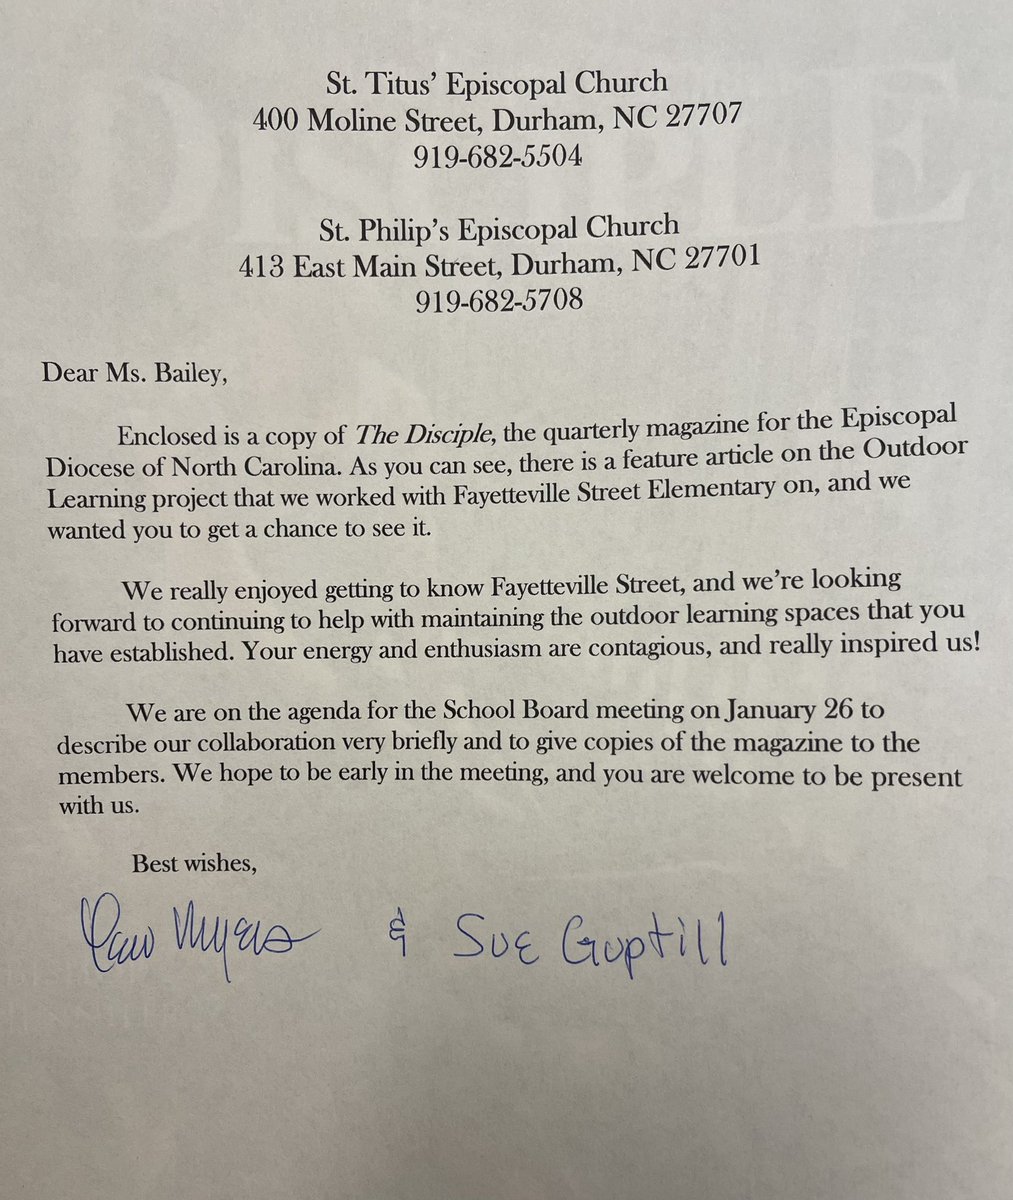 St. Titus’ Episcopal Church
400 Moline Street, Durham, NC 27707
919-682-5504
St. Philip’s Episcopal Church
413 East Main Street, Durham, NC 27701
919-682-5708
Dear Ms. Bailey,
Enclosed is a copy of The Disciple, the quarterly magazine for the Episcopal
Diocese of North Carolina. As you can see, there is a feature article on the Outdoor
Learning project that we worked with Fayetteville Street Elementary on, and we
wanted you to get a chance to see it.
We really enjoyed getting to know Fayetteville Street, and we’re looking
forward to continuing to help with maintaining the outdoor learning spaces that you
have established. Your energy and enthusiasm are contagious, and really inspired us!
We are on the agenda for the School Board meeting on January 26 to
describe our collaboration very briefly and to give copies of the magazine to the
members. We hope to be early in the meeting, and you are welcome to be present
with us.
Best wishes,
Myers & Sue Guptill